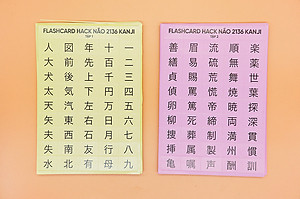 FLASHCARD HACK NÃO 2136 KANJI
TẬP 1
人 図 年 十 一
大 前 先 百 二
犬 後 上 千 三
太 気 下 万 四
天 汽 左 円 五
矢 東 右 日 六
夫 西 石 月 七
失 南 友 行 八
水 北 有 母 九
FLASHCARD HACK NÃO 2136 KANJI
TẬP 2
善 眉 流 順 楽
繕 易 硫 無 薬
貞 賜 荒 舞 世
偵 罵 慌 焼 葉
卵 篤 帝 暁 探
柳 死 締 両 深
捜 葬 制 満 貫
挿 属 製 州 慣
亀 嘱 声 酬 訓